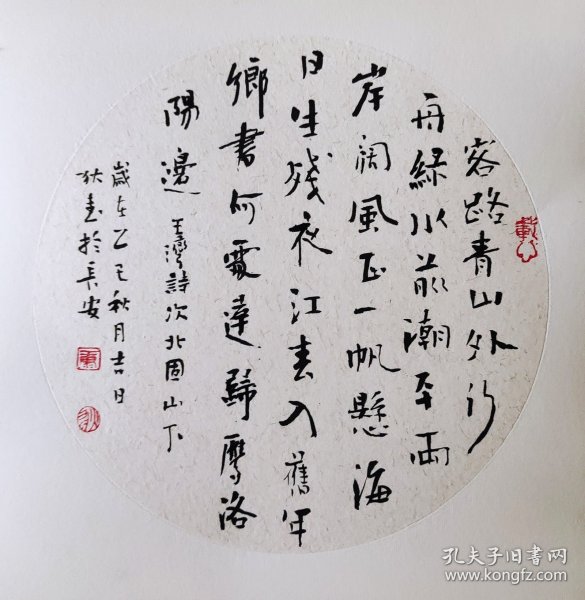 客路青山外行
舟緑水前潮平兩
岸闊風正一帆懸海
日生残夜江春入舊年
鄉書何處達歸雁洛
陽邊 王灣詩次北固山下
歲在乙巳秋月吉日
於長安
孔夫子旧书网
www.kongfz.com